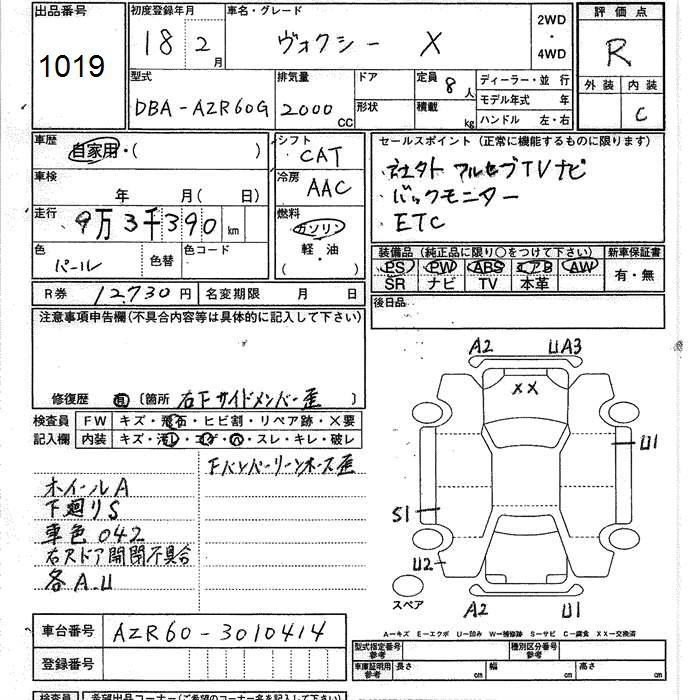 出品番号 初度登録年月 車名・グレード 2WD・4WD 評価点
1019 18 2月 ヴォクシー X R
型式 排気量 ドア 定員 8人 ディーラー・並行 外装 内装
DBA-AZR60G 2000cc 形状 積載 kg モデル年式 年 C
ハンドル 左・右
車歴 自家用・( ) シフト CAT セールスポイント (正常に機能するものに限ります)
車検 年 月(日) 冷房 AAC ・社外 アルセブTVナビ
・バックモニター
走行 9万3千390km 燃料 ガソリン ・ETC
色 パール 色替 色コード 軽・油 ( )
装備品 (純正品に限り○をつけて下さい) 新車保証書
PS PW ABS エアB AW 有・無
SR ナビ TV 本革
R券 12,730円 名変期限 月 日 後日品
注意事項申告欄(不具合内容等は具体的に記入して下さい)
修復歴 有 〔箇所 右Fサイドメンバー歪 〕
検査員 FW キズ・飛石・ヒビ割・リペア跡・×要
記入欄 内装 キズ・汚レ・コゲ・穴・スレ・キレ・破レ
Fバンパーリーンホース歪
ホイールA
下廻りS
車色042
右スドア開閉不具合
各A.U
A2 UA3
XX
U1
S1
U2
スペア A2 U1
A―キズ E―エクボ U―凹み W―補修跡 S―サビ C―腐食 XX―交換済
車台番号 AZR60-3010414
型式指定番号 参考 種別区分番号 参考
登録番号 車庫証明用 参考 長さ cm 幅 cm 高さ cm
検査員 希望出品コーナー(ご希望のコーナー名を記入下さい)